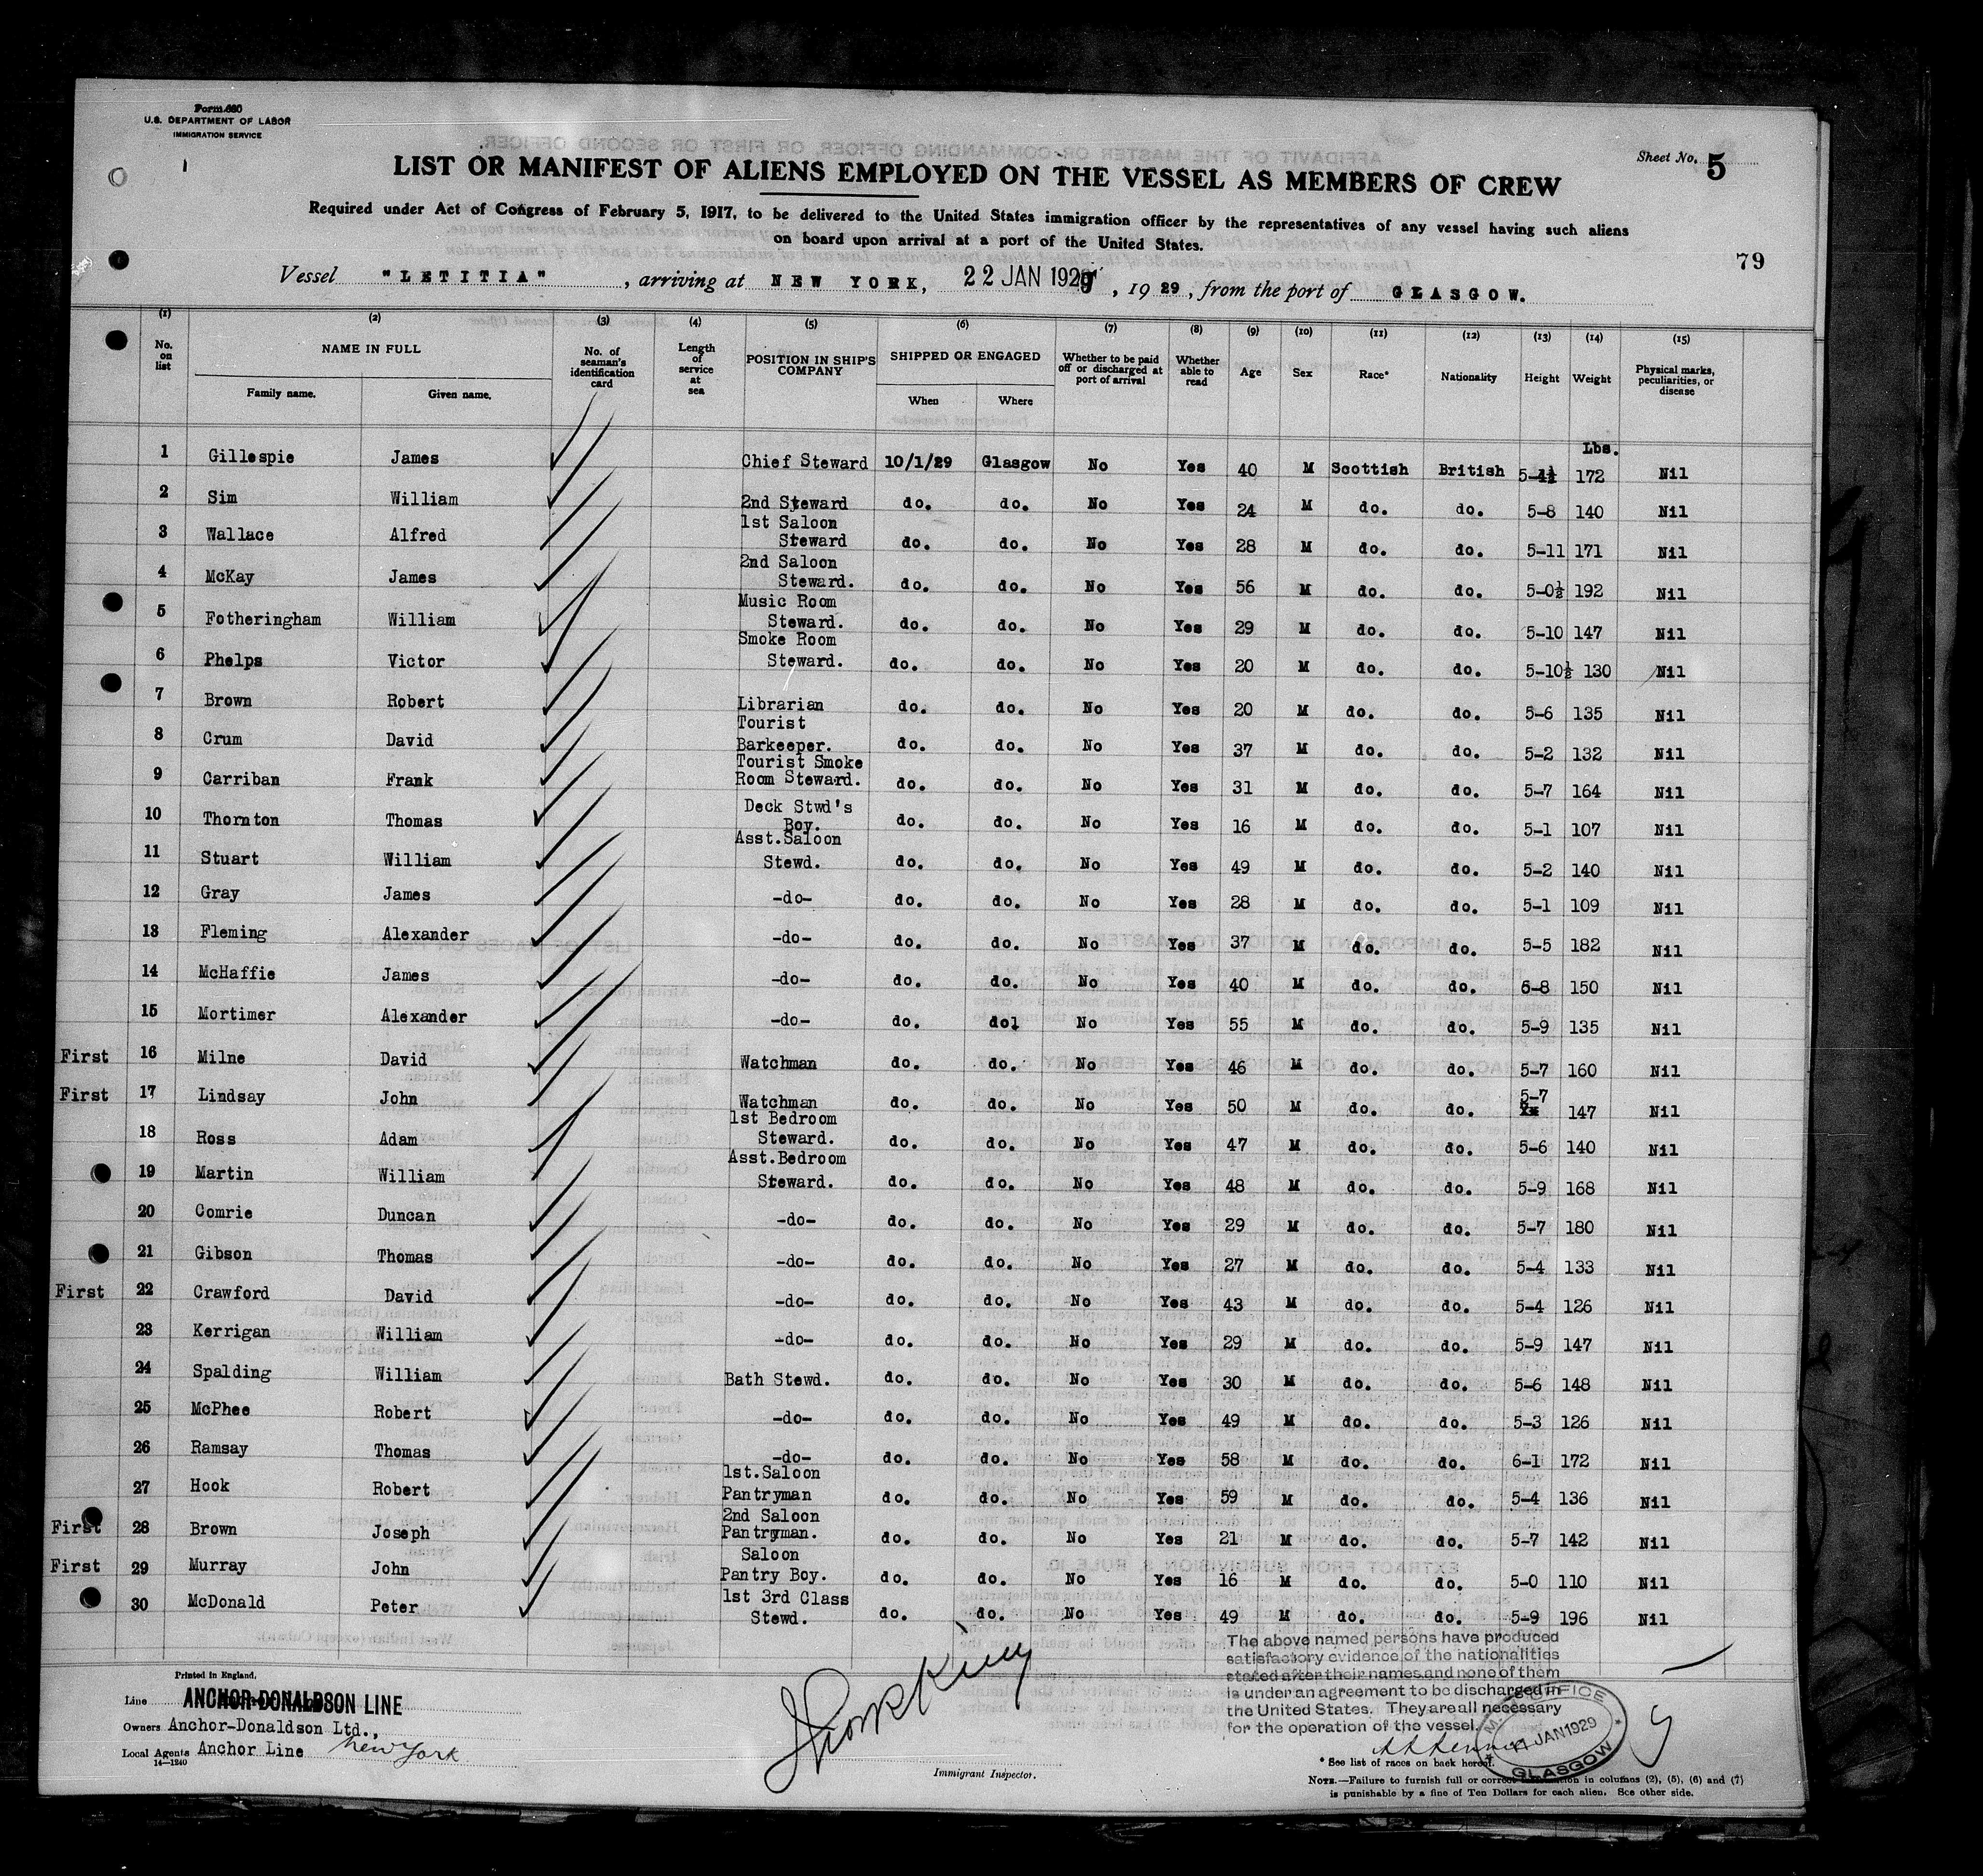 Form 680
U.S. DEPARTMENT OF LABOR
IMMIGRATION SERVICE
Sheet No. 5
LIST OR MANIFEST OF ALIENS EMPLOYED ON THE VESSEL AS MEMBERS OF CREW
Required under Act of Congress of February 5, 1917, to be delivered to the United States immigration officer by the representatives of any vessel having such aliens
on board upon arrival at a port of the United States.
79
Vessel "LETITIA", arriving at NEW YORK, 22 JAN 1929, 1929, from the port of GLASGOW.
(1) (2) (3) (4) (5) (6) (7) (8) (9) (10) (11) (12) (13) (14) (15)
No. on list | NAME IN FULL | Family name. | Given name. | No. of seaman's identification card | Length of service at sea | POSITION IN SHIP'S COMPANY | SHIPPED OR ENGAGED | When | Where | Whether to be paid off or discharged at port of arrival | Whether able to read | Age | Sex | Race* | Nationality | Height | Weight | Physical marks, peculiarities, or disease
Lbs.
1 Gillespie James Chief Steward 10/1/29 Glasgow No Yes 40 M Scottish British 172 Nil
2 Sim William 2nd Steward do. do. No Yes 24 M do. do. 5-8 140 Nil
3 Wallace Alfred 1st Saloon Steward do. do. No Yes 28 M do. do. 5-11 171 Nil
4 McKay James 2nd Saloon Steward. do. do. No Yes 56 M do. do. 5-0½ 192 Nil
5 Fotheringham William Music Room Steward. do. do. No Yes 29 M do. do. 5-10 147 Nil
6 Phelps Victor Smoke Room Steward. do. do. No Yes 20 M do. do. 5-10½ 130 Nil
7 Brown Robert Librarian do. do. No Yes 20 M do. do. 5-6 135 Nil
8 Crum David Tourist Barkeeper. do. do. No Yes 37 M do. do. 5-2 132 Nil
9 Carriban Frank Tourist Smoke Room Steward. do. do. No Yes 31 M do. do. 5-7 164 Nil
10 Thornton Thomas Deck Stwd's Boy. do. do. No Yes 16 M do. do. 5-1 107 Nil
11 Stuart William Asst.Saloon Stewd. do. do. No Yes 49 M do. do. 5-2 140 Nil
12 Gray James -do- do. do. No Yes 28 M do. do. 5-1 109 Nil
13 Fleming Alexander -do- do. do. No Yes 37 M do. do. 5-5 182 Nil
14 McHaffie James -do- do. do. No Yes 40 M do. do. 6-8 150 Nil
15 Mortimer Alexander -do- do. dol No Yes 55 M do. do. 5-9 135 Nil
First 16 Milne David Watchman do. do. No Yes 46 M do. do. 5-7 160 Nil
First 17 Lindsay John Watchman do. do. No Yes 50 M do. do. 5-7 147 Nil
18 Ross Adam 1st Bedroom Steward. do. do. No Yes 47 M do. do. 5-6 140 Nil
19 Martin William Asst.Bedroom Steward. do. do. No Yes 48 M do. do. 5-9 168 Nil
20 Comrie Duncan -do- do. do. No Yes 29 M do. do. 5-7 180 Nil
21 Gibson Thomas -do- do. do. No Yes 27 M do. do. 5-4 133 Nil
First 22 Crawford David -do- do. do. No Yes 43 M do. do. 5-4 126 Nil
23 Kerrigan William -do- do. do. No Yes 29 M do. do. 5-9 147 Nil
24 Spalding William Bath Stewd. do. do. No Yes 30 M do. do. 5-6 148 Nil
25 McPhee Robert -do- do. do. No Yes 49 M do. do. 5-3 126 Nil
26 Ramsay Thomas -do- do. do. No Yes 58 M do. do. 6-1 172 Nil
27 Hook Robert 1st.Saloon Pantryman do. do. No Yes 59 M do. do. 5-4 136 Nil
First 28 Brown Joseph 2nd Saloon Pantryman. do. do. No Yes 21 M do. do. 5-7 142 Nil
First 29 Murray John Saloon Pantry Boy. do. do. No Yes 16 M do. do. 5-0 110 Nil
30 McDonald Peter 1st 3rd Class Stewd. do. do. No Yes 49 M do. do. 5-9 196 Nil
The above named persons have produced
satisfactory evidence of the nationalities
stated after their names and none of them
is under an agreement to be discharged in
the United States. They are all necessary
for the operation of the vessel.
Printed in England.
Line ANCHOR-DONALDSON LINE
Owners Anchor-Donaldson Ltd.,
Local Agents Anchor Line New York
14—1240
Immigrant Inspector.
OFFICE
11 JAN 1929
GLASGOW
* See list of races on back hereof.
NOTE.—Failure to furnish full or correct in columns (2), (5), (6) and (7)
is punishable by a fine of Ten Dollars for each alien. See other side.